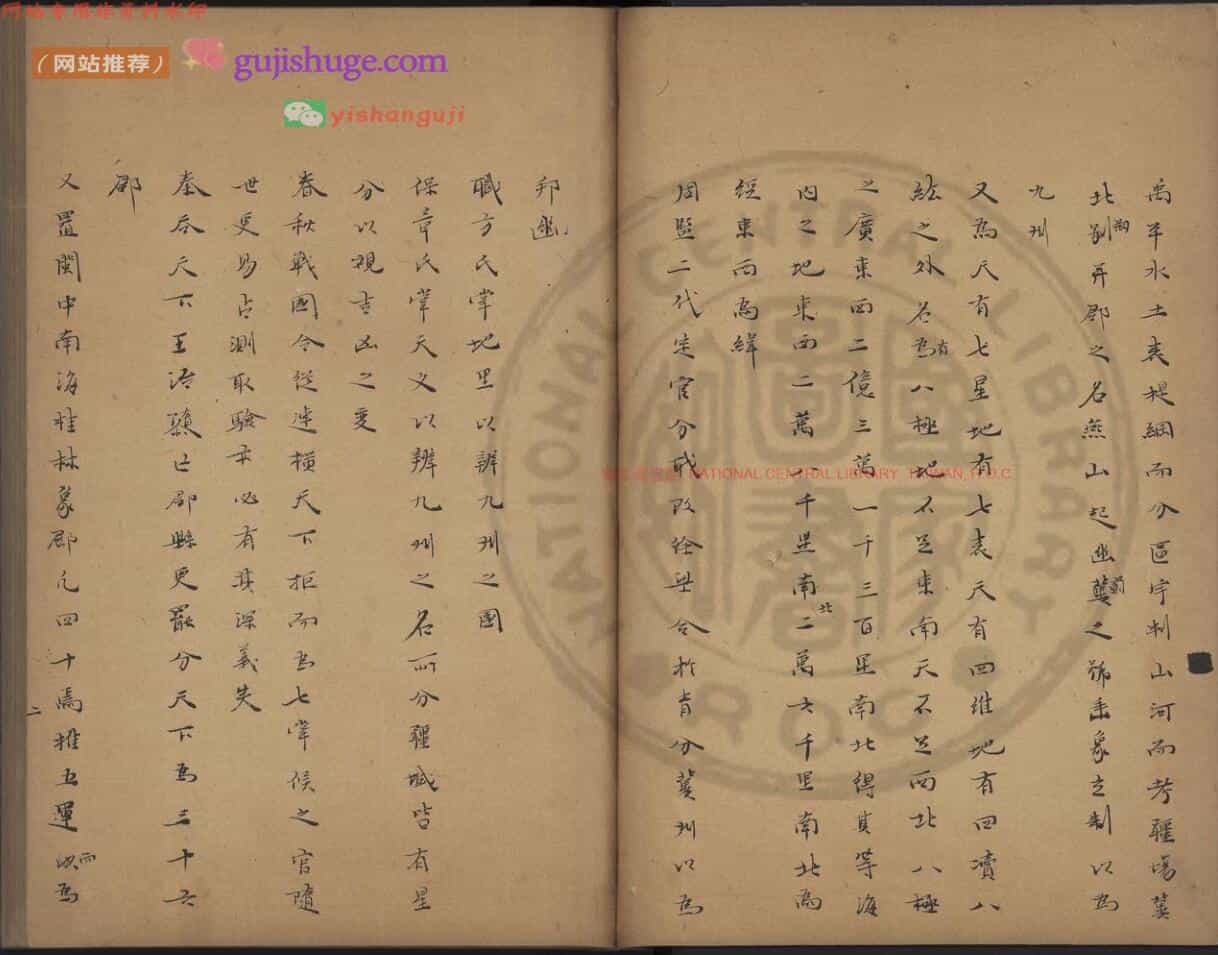 网站会增添资料水印
（网站推荐） gujishuge.com
yishanguji
NATIONAL CENTRAL LIBRARY
R.O.C
NATIONAL CENTRAL LIBRARY TAIWAN, R.O.C
禹平水土表提綱而分區宇制山河而考疆場冀
北剏并郡之名燕山起幽冀之號垂象立制以為
九州
又為天有七星地有七表天有四維地有四瀆八
紘之外名為有八極地不足東南天不足西北八極
之廣東西二億三萬一千三百里南北得其等海
內之地東西二萬八千里南北二萬六千里南北為
經東西為緯
周監二代定官分職改徐梁合於青分冀州以為
邦幽
職方氏掌地里以辨九州之國
保章氏掌天文以辨九州之名所分疆域皆有星
分以視吉凶之變
春秋戰國合從連橫天下拒而為七掌候之官隨
世更易占測取驗亦必有其深義失
秦吞天下王治 亡郡縣更罷分天下為三十六
郡
又置閩中南海桂林象郡凡四十焉推五運 而為
二